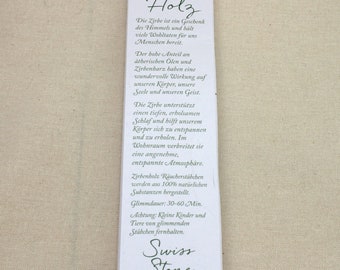 Holz
Die Zirbe ist ein Geschenk
des Himmels und hält
viele Wohltaten für uns
Menschen bereit.
Der hohe Anteil an
ätherischen Ölen und
Zirbenharz haben eine
wundervolle Wirkung auf
unseren Körper, unsere
Seele und unseren Geist.
Die Zirbe unterstützt
einen tiefen, erholsamen
Schlaf und hilft unserem
Körper sich zu entspannen
und zu erholen. Im
Wohnraum verbreitet sie
eine angenehme,
entspannte Atmosphäre.
Zirbenholz Räucherstäbchen
werden aus 100% natürlichen
Substanzen hergestellt.
Glimmdauer: 30-60 Min.
Achtung: Kleine Kinder und
Tiere von glimmenden
Stäbchen fernhalten.
Swiss
Stone